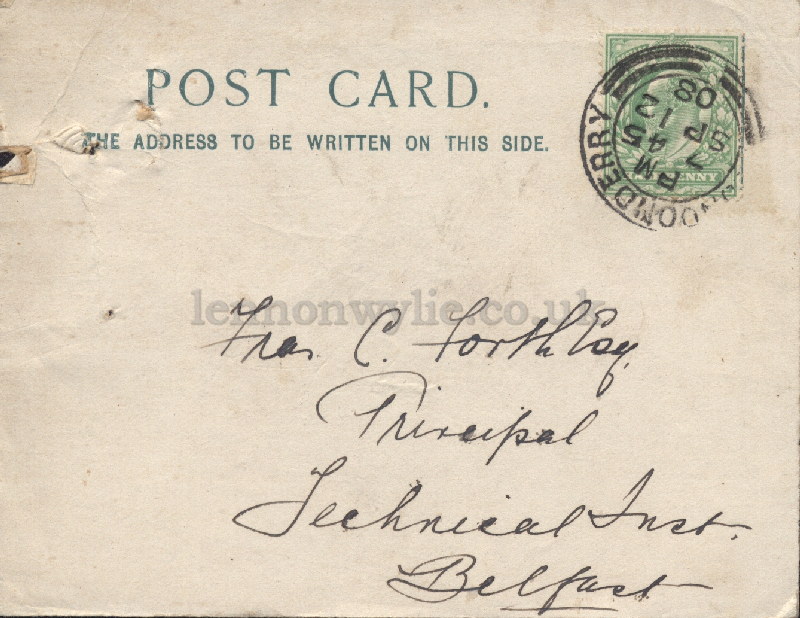 POST CARD.
THE ADDRESS TO BE WRITTEN ON THIS SIDE.
LONDONDERRY
12 45 PM
SP 7
08
PENNY
lennonwylie.co.uk
Fras. C. Forth Esq.
Principal
Technical Inst.
Belfast